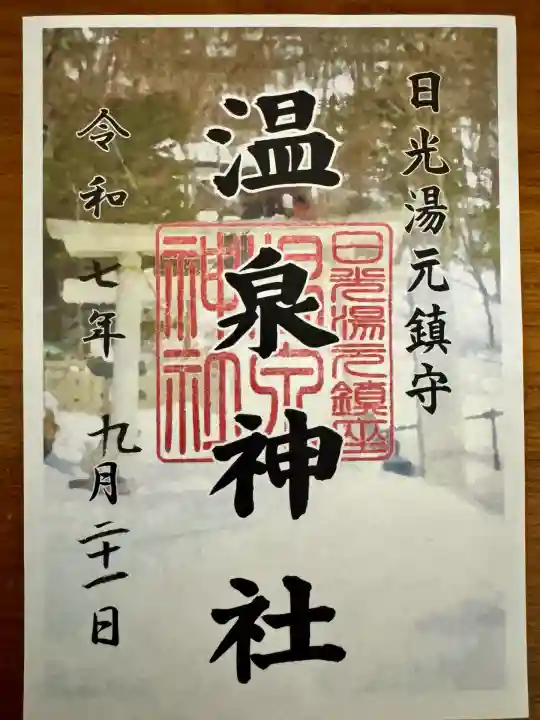 日光湯元鎮守
温泉神社
日光湯元鎮座
温泉
神社
令和七年 九月二十一日